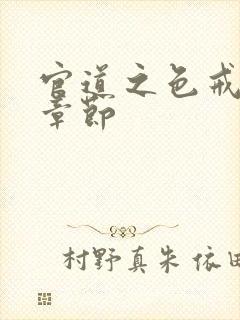 官道之色戒
章节
村野真朱 依田